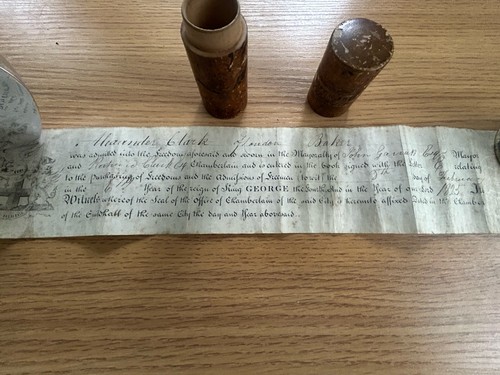 Alexander Clark of London Baker
was admitted into the freedom aforesaid and sworn in the Mayoralty of John Esqr. Mayor
and Richard Clark Esqr. Chamberlain and is entered in the book signed with the Letter relating
to the purchasing of Freedoms and the Admissions of Freemen (to wit) the day of
in the Year of the reign of King GEORGE the And in the Year of our Lord In
Witness whereof the Seal of the Office of Chamberlain of the said City is hereunto affixed Dated in the Chamber
of the Guildhall of the same City the day and Year abovesaid